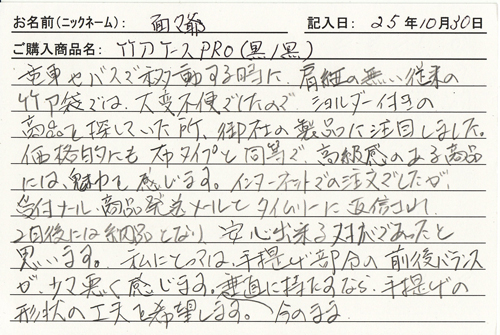 お名前(ニックネーム): 面々爺 記入日: 25年10月30日
ご購入商品名: 竹刀ケースPRO(黒/黒)
電車やバスで移動する時に、肩紐の無い従来の
竹刀袋では、大変不便でしたので ショルダー付きの
商品を探していた所、御社の製品に注目しました。
価格的にも布タイプと同等で、高級感のある商品
には、魅力を感じます。インターネットでの注文でしたが、
受付メール、商品発送メールとタイムリーに返信され
2日後には納品となり、安心出来る対応であったと
思います。私にとっては、手提げ部分の前後バランス
が、少々悪く感じます。垂直に持たすなら、手提げの
形状の工夫を希望します。今のまま